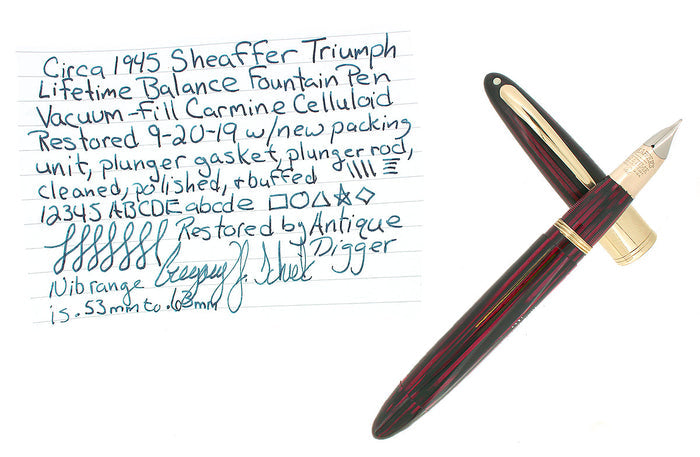 Circa 1945 Sheaffer Triumph
Lifetime Balance Fountain Pen
Vacuum-Fill Carmine Celluloid
Restored 9-20-19 w/new packing
unit, plunger gasket, plunger rod,
cleaned, polished, + buffed
12345 ABCDE abcde
Restored by Antique
Digger
Gregory J.
Nib range
is .53mm to .63mm
SHEAFFER'S
LIFETIME